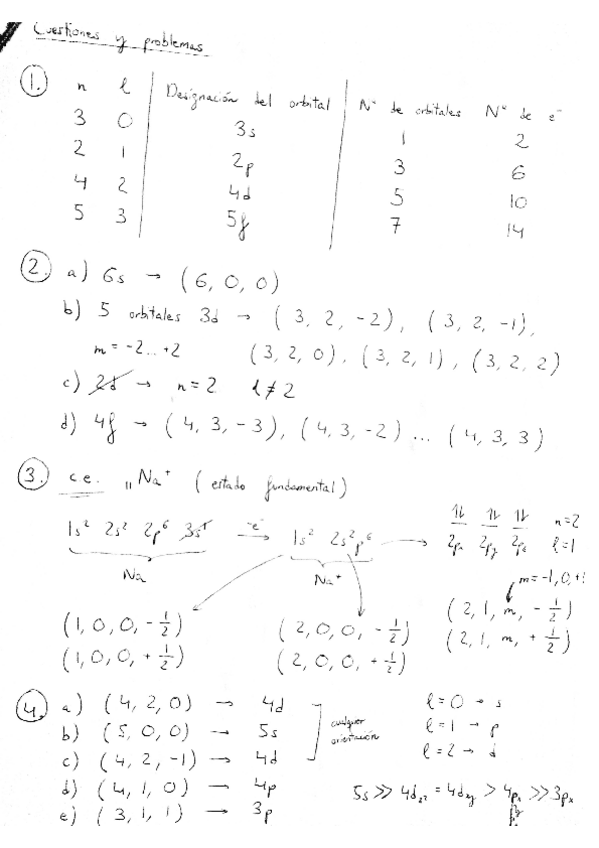 Cuestiones y problemas
1. n l Designación del orbital Nº de orbitales Nº de e⁻
3 0 3s 1 2
2 1 2p 3 6
4 2 4d 5 10
5 3 5f 7 14
2. a) 6s → (6, 0, 0)
b) 5 orbitales 3d → (3, 2, -2), (3, 2, -1),
m = -2 ... +2 (3, 2, 0), (3, 2, 1), (3, 2, 2)
c) 2d → n = 2 l ≠ 2
d) 4f → (4, 3, -3), (4, 3, -2) ... (4, 3, 3)
3. c.e. ₁₁Na⁺ (estado fundamental)
1s² 2s² 2p⁶ 3s¹ -e⁻→ 1s² 2s² p⁶ → ⥮ ⥮ ⥮ n=2
2pₓ 2p_y 2p_z l=1
Na Na⁺ m=-1, 0, +1
(1, 0, 0, -1/2) (2, 0, 0, -1/2) (2, 1, m, -1/2)
(1, 0, 0, +1/2) (2, 0, 0, +1/2) (2, 1, m, +1/2)
4. a) (4, 2, 0) → 4d l=0 → s
b) (5, 0, 0) → 5s cualquier orientación l=1 → p
c) (4, 2, -1) → 4d l=2 → d
d) (4, 1, 0) → 4p 5s >> 4d_z² = 4d_xy > 4pₓ >> 3pₓ
e) (3, 1, 1) → 3p